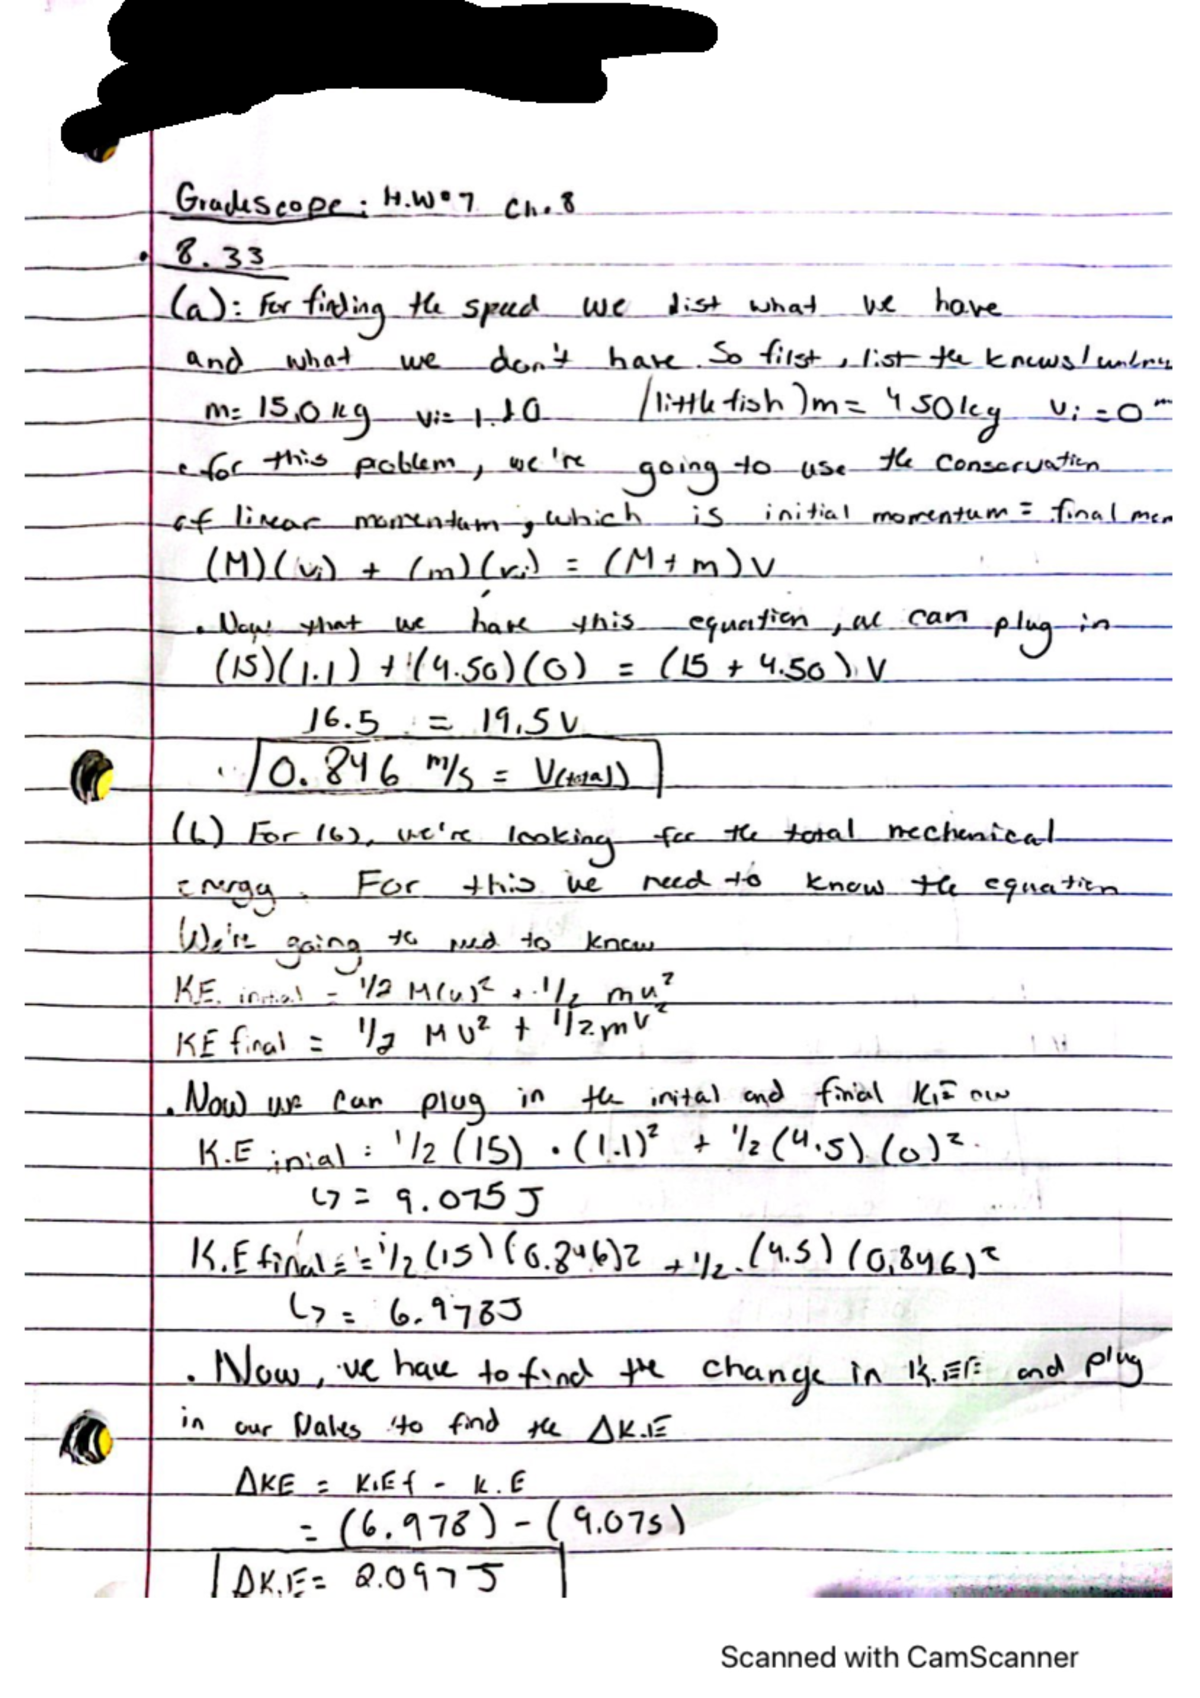 Gradescope: H.W°7 Ch.8
8.33
(a): For finding the speed we list what we have
and what we don't have. So first, list the knows/
m= 15.0 kg vi= 1.10 (little fish)m= 4.50kg vi=0 m
for this problem, we're going to use the conservation
of linear momentum, which is initial momentum = final mom
(M)(vi) + (m)(vi) = (M+m)V
. Now that we have this equation, we can plug in
(15)(1.1) + (4.50)(0) = (15 + 4.50) V
16.5 = 19.5 V
0.846 m/s = V(total)
(b) For (b), we're looking for the total mechanical
energy. For this we need to know the equation
We're going to need to know
KE. initial = 1/2 M(v)² + 1/2 mv²
KE final = 1/2 MV² + 1/2 mv²
. Now we can plug in the inital and finial K.E
K.E inial = 1/2 (15) · (1.1)² + 1/2 (4.5) (0)².
↳ = 9.075 J
K.E final = = 1/2 (15) (0.846)2 + 1/2 · (4.5) (0.846)²
↳ = 6.978J
. Now, we have to find the change in K.E and plug
in our Vales to find the ΔK.E
ΔKE = K.Ef - K.E
= (6.978) - (9.075)
ΔK.E = 2.097 J
Scanned with CamScanner